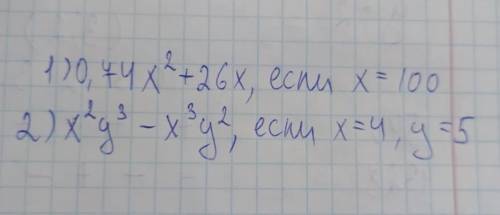 1) 0,74x² + 26x, если x = 100
2) x²y³ - x³y², если x = 4, y = 5